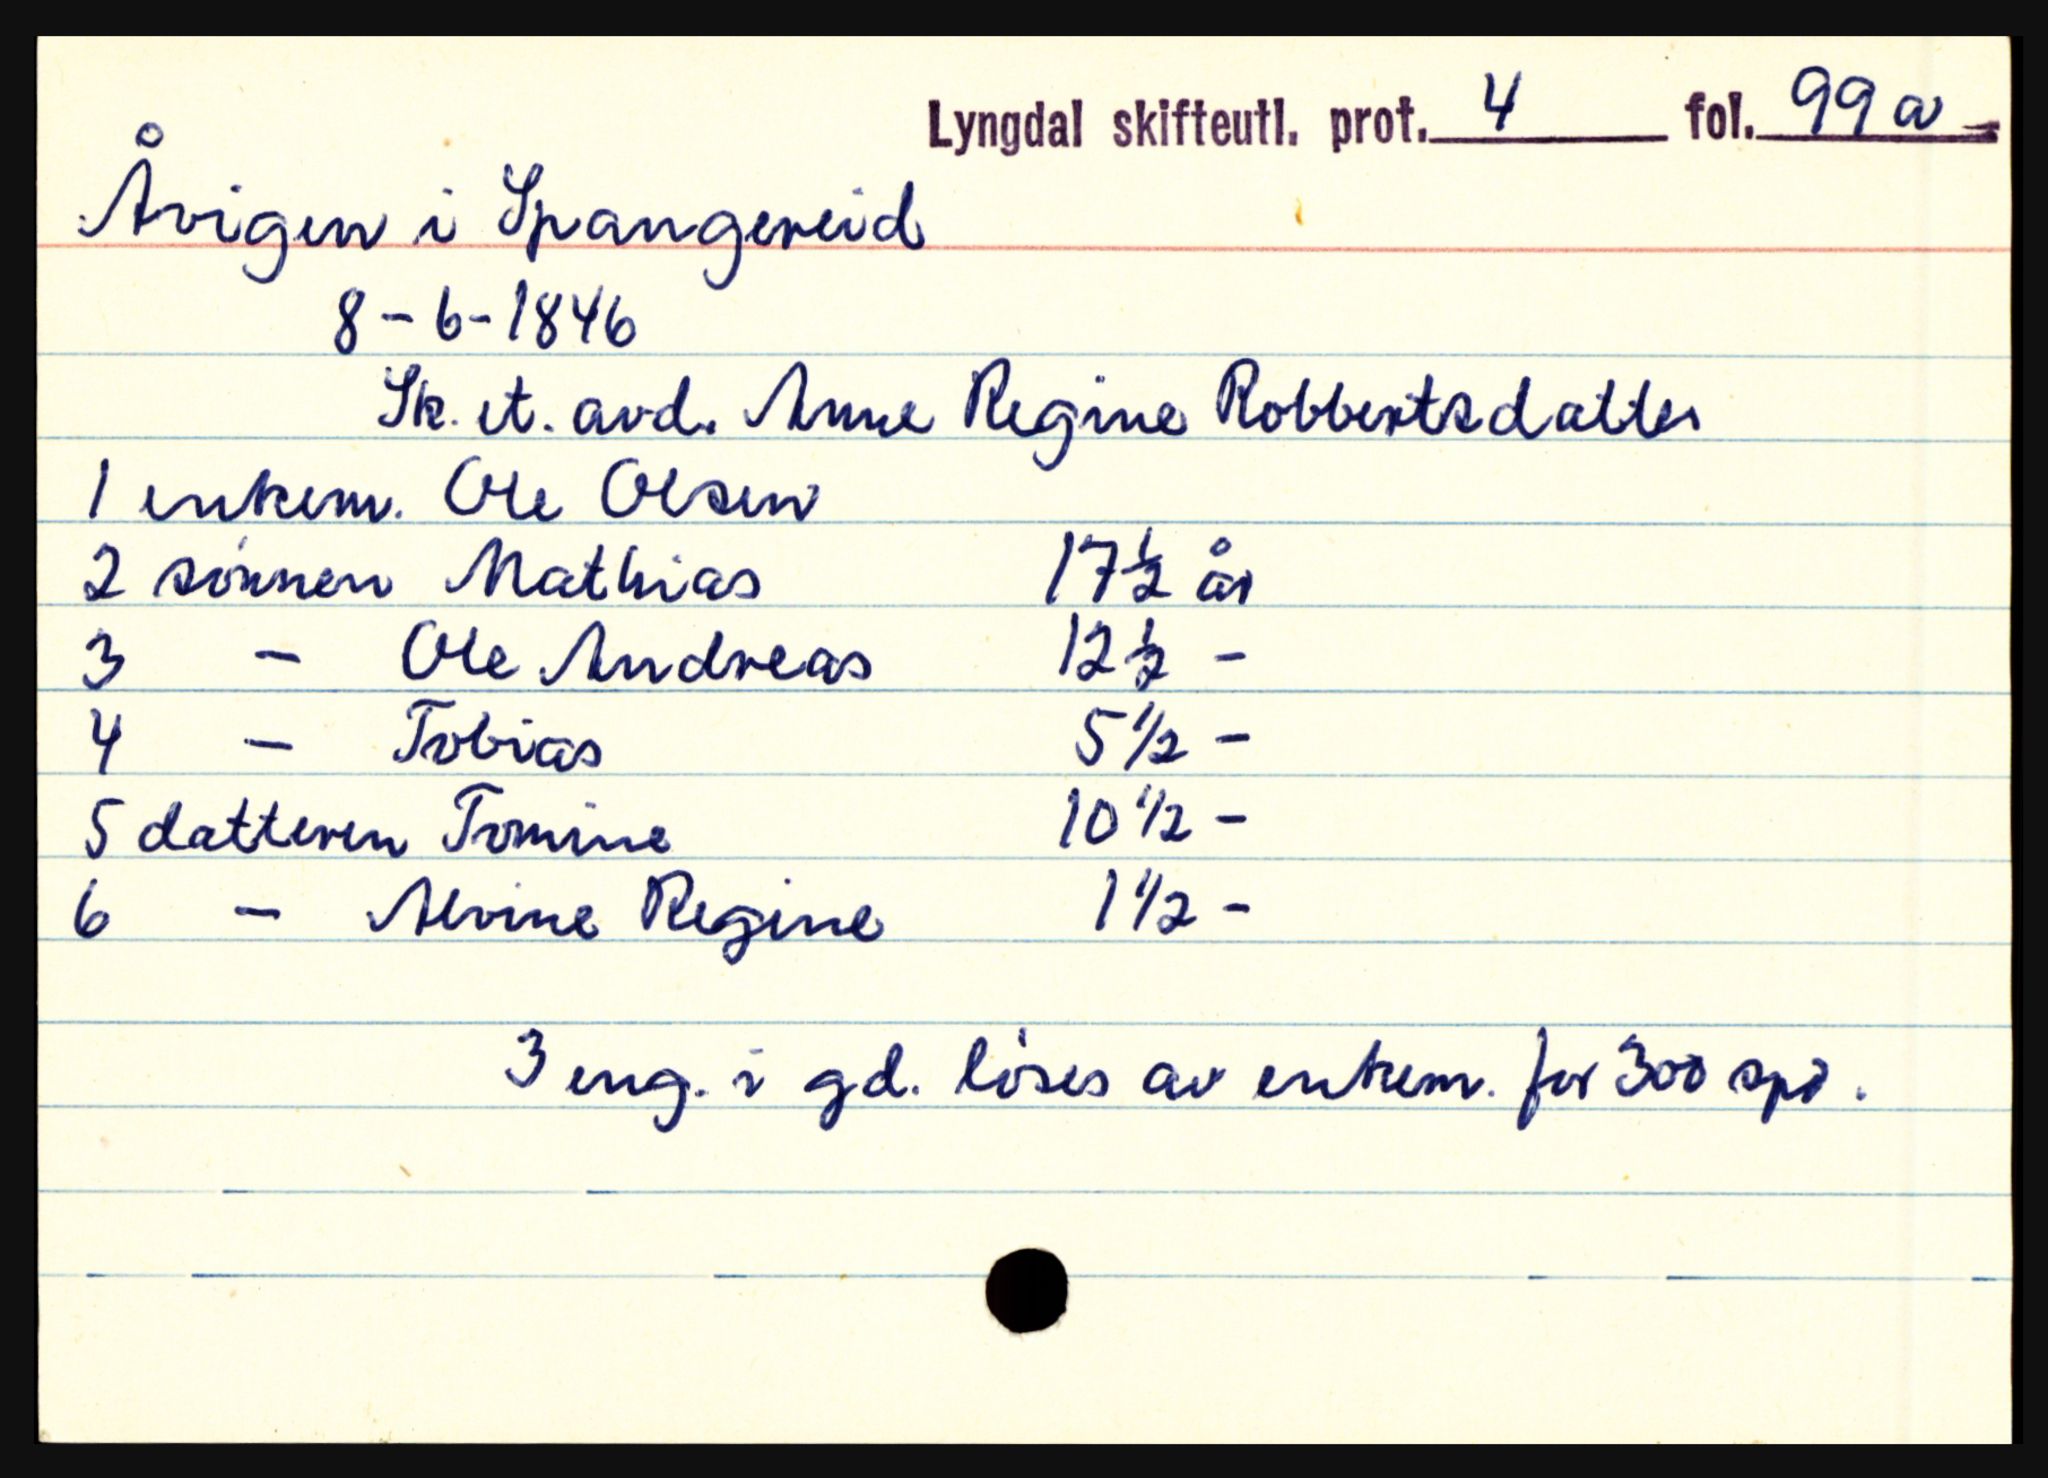 Lyngdal skifteutl. prot. 4 fol. 99 a
Åvigen i Spangereid
8-6-1846
Sk. et. avd. Anne Regine Robbertsdatter
1 enkem. Ole Olsen
2 sønnen Mathias 17½ år
3 - Ole Andreas 12½ -
4 - Tobias 5½ -
5 datteren Tomine 10½ -
6 - Alvine Regine 1½ -
3 eng. i gd. løses av enkem. for 300 spd.